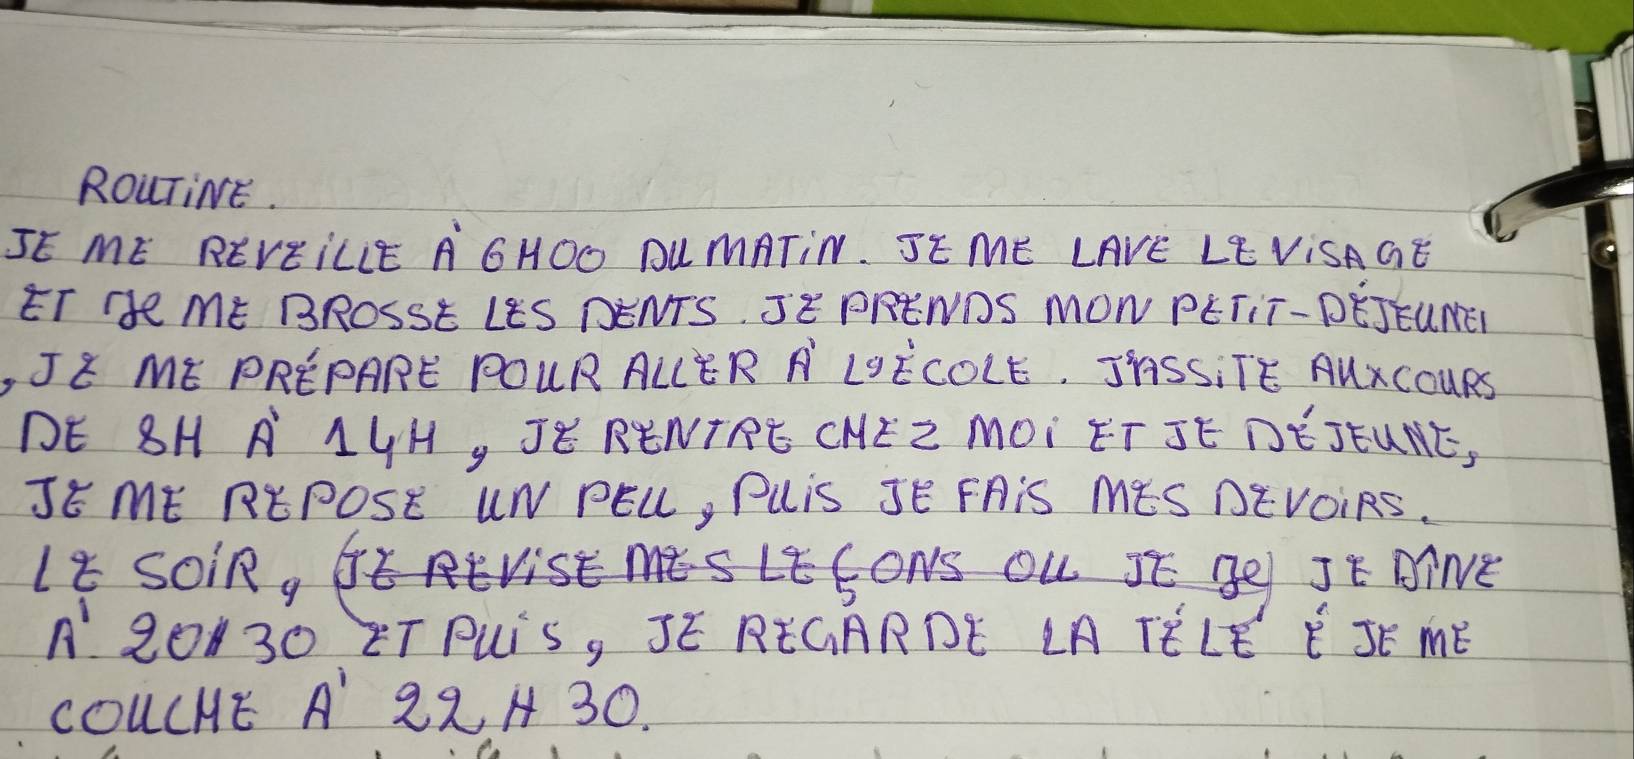 ROUTINE.
JE ME REVEILLE À 6H00 DU MATIN. JE ME LAVE LE VISAGE
ET Je ME BROSSE LES DENTS. JE PRENDS MON PETIT-DÉJEUNER
, JE ME PRÉPARE POUR ALLER À L'ÉCOLE. J'ASSITE AUX COURS
DE 8H À 14H, JE RENTRE CHEZ MOI ET JE DÉJEUNE,
JE ME REPOSE UN PEU, PUIS JE FAIS MES DEVOIRS.
LE SOIR, (JE REVISE MES LEÇONS OU JE ge) JE DÎNE
À 20H30 ET PUIS, JE REGARDE LA TÉLÉ É JE ME
COUCHE À 22H30.